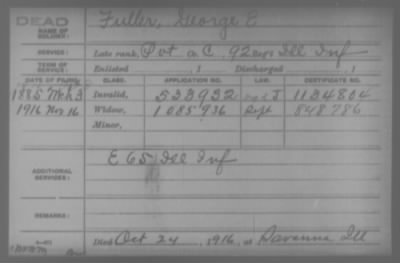 DEAD
NAME OF SOLDIER: Fuller, George E
SERVICE: Late rank, Pvt Co. C, 92 Reg't Ill Inf
TERM OF SERVICE: Enlisted , 1 Discharged , 1
DATE OF FILING. CLASS. APPLICATION NO. LAW. CERTIFICATE NO.
1885 Mch 3 Invalid, 533932 J 1134804
1916 Nov 16 Widow, 1085936 Sept 848786
Minor,
ADDITIONAL SERVICES: E 65 Ill Inf
REMARKS:
Died Oct 24, 1916, at Savanna Ill